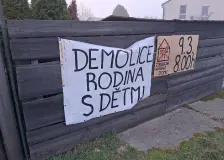 DEMOLICE
RODINA
S DĚTMI
9.3.
8.00h